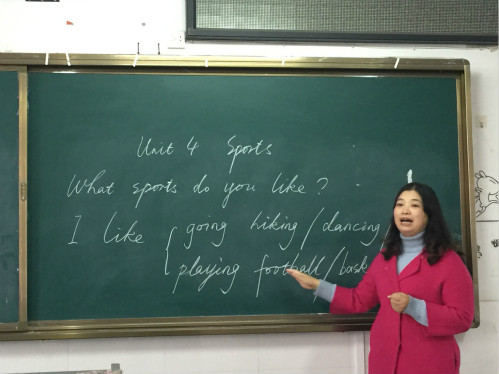 Unit 4 Sports
What sports do you like?
I like { going hiking/dancing/
playing football/bask